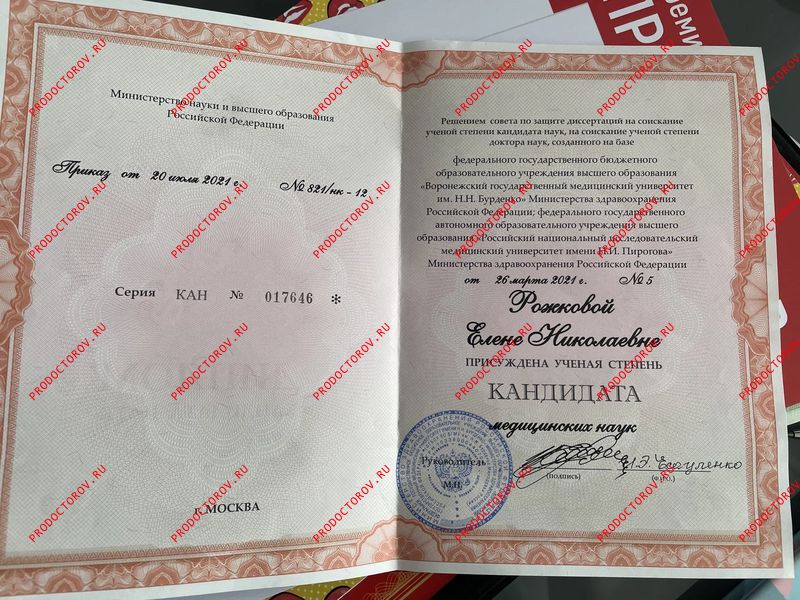 Министерство науки и высшего образования
Российской Федерации
Приказ от 20 июля 2021 г. № 821/нк - 12
Серия КАН № 017646 *
г. МОСКВА
Решением совета по защите диссертаций на соискание
ученой степени кандидата наук, на соискание ученой степени
доктора наук, созданного на базе
федерального государственного бюджетного
образовательного учреждения высшего образования
«Воронежский государственный медицинский университет
им. Н.Н. Бурденко» Министерства здравоохранения
Российской Федерации; федерального государственного
автономного образовательного учреждения высшего
образования «Российский национальный исследовательский
медицинский университет имени Н.И. Пирогова»
Министерства здравоохранения Российской Федерации
от 26 марта 2021 г. № 5
Рожковой
Елене Николаевне
ПРИСУЖДЕНА УЧЕНАЯ СТЕПЕНЬ
КАНДИДАТА
медицинских наук
Руководитель
М.П.
(подпись)
И.Э. Есауленко
(Ф.И.О.)
PRODOCTOROV.RU